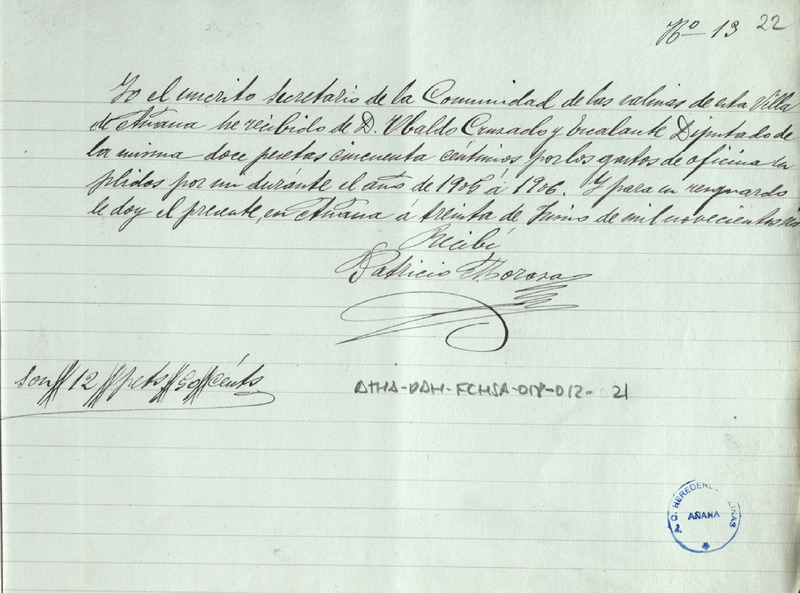 Nº 13 22
Yo el infrito Secretario de la Comunidad de las salinas de esta Villa
de Añana he recibido de D. Ubaldo Cruzado y Escalante Diputado de
la misma doce pesetas cincuenta céntimos por los gastos de oficina su
plidos por mi durante el año de 1905 á 1906. Y para su resguardo
le doy el presente, en Añana á treinta de Junio de mil novecientos seis
Recibí
Patricio
Son 12 pets 50 cénts
ATHA-DAH-FCHSA-018-012- 21
AÑANA